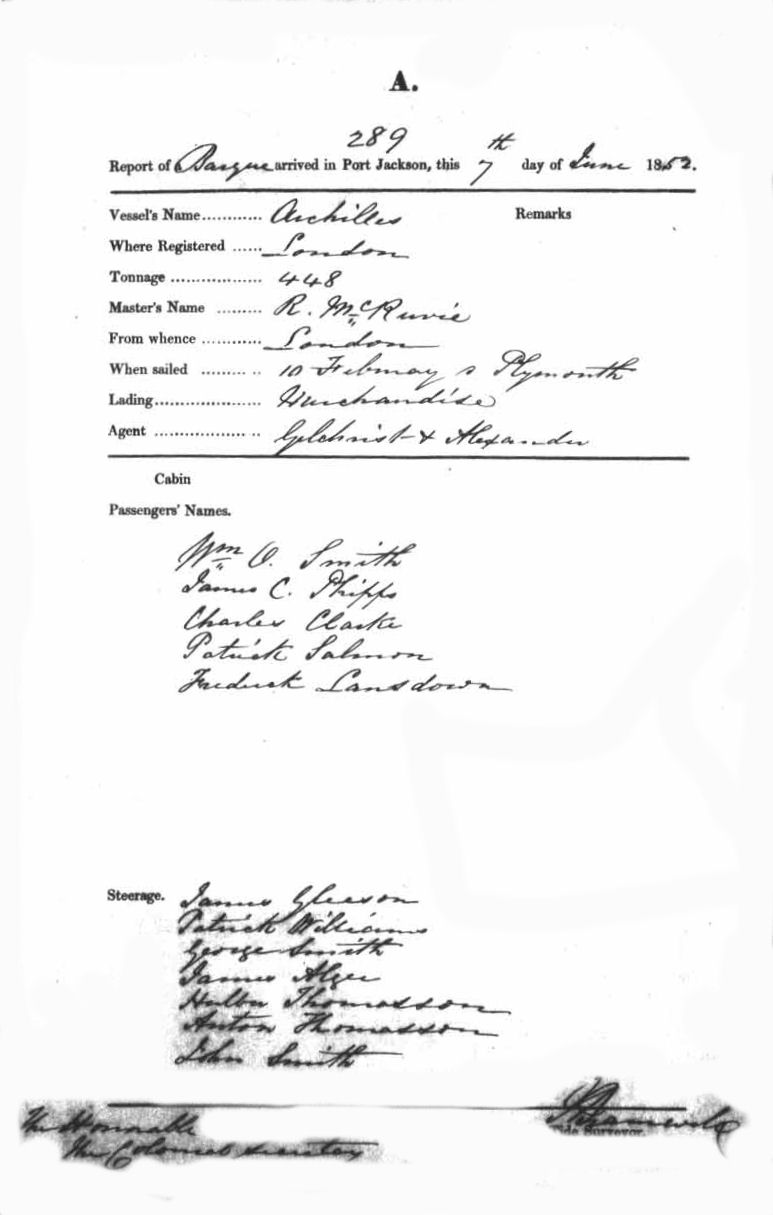 A.
289
Report of Barque arrived in Port Jackson, this 7th day of June 1852.
Vessel's Name ............ Archilles Remarks
Where Registered ...... London
Tonnage .................. 448
Master's Name ......... R. McRuvie
From whence ............ London
When sailed ......... .. 10 February & Plymouth
Lading..................... Merchandise
Agent .................. .. Gilchrist & Alexander
Cabin
Passengers' Names.
Wm O. Smith
James C. Phipps
Charles Clarke
Patrick Salmon
Frederick Lansdown
Steerage. James Gleeson
Patrick Williams
George Smith
James Alger
Thomasson
Anton Thomasson
John Smith
The Honorable
The Colonial Secretary
Tide Surveyor.